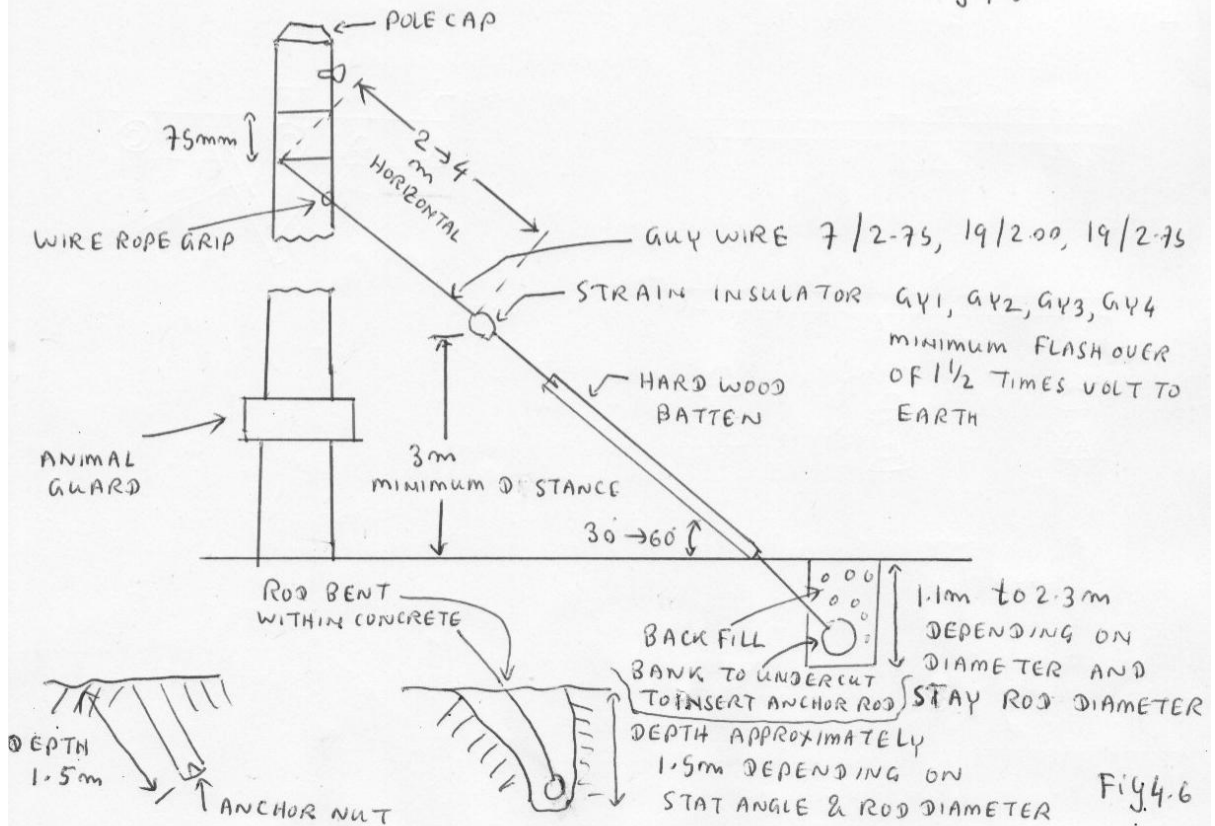 POLE CAP
75mm
2→4
m
HORIZONTAL
WIRE ROPE GRIP
GUY WIRE 7/2-75, 19/2.00, 19/2-75
STRAIN INSULATOR GY1, GY2, GY3, GY4
MINIMUM FLASH OVER
OF 1 1/2 TIMES VOLT TO
EARTH
HARD WOOD
BATTEN
ANIMAL
GUARD
3m
MINIMUM DISTANCE
30°→60°
ROD BENT
WITHIN CONCRETE
BACK FILL
BANK TO UNDERCUT
TO INSERT ANCHOR ROD
1.1m to 2.3m
DEPENDING ON
DIAMETER AND
STAY ROD DIAMETER
DEPTH
1.5m
ANCHOR NUT
DEPTH APPROXIMATELY
1.5m DEPENDING ON
STAT ANGLE & ROD DIAMETER
Fig 4.6